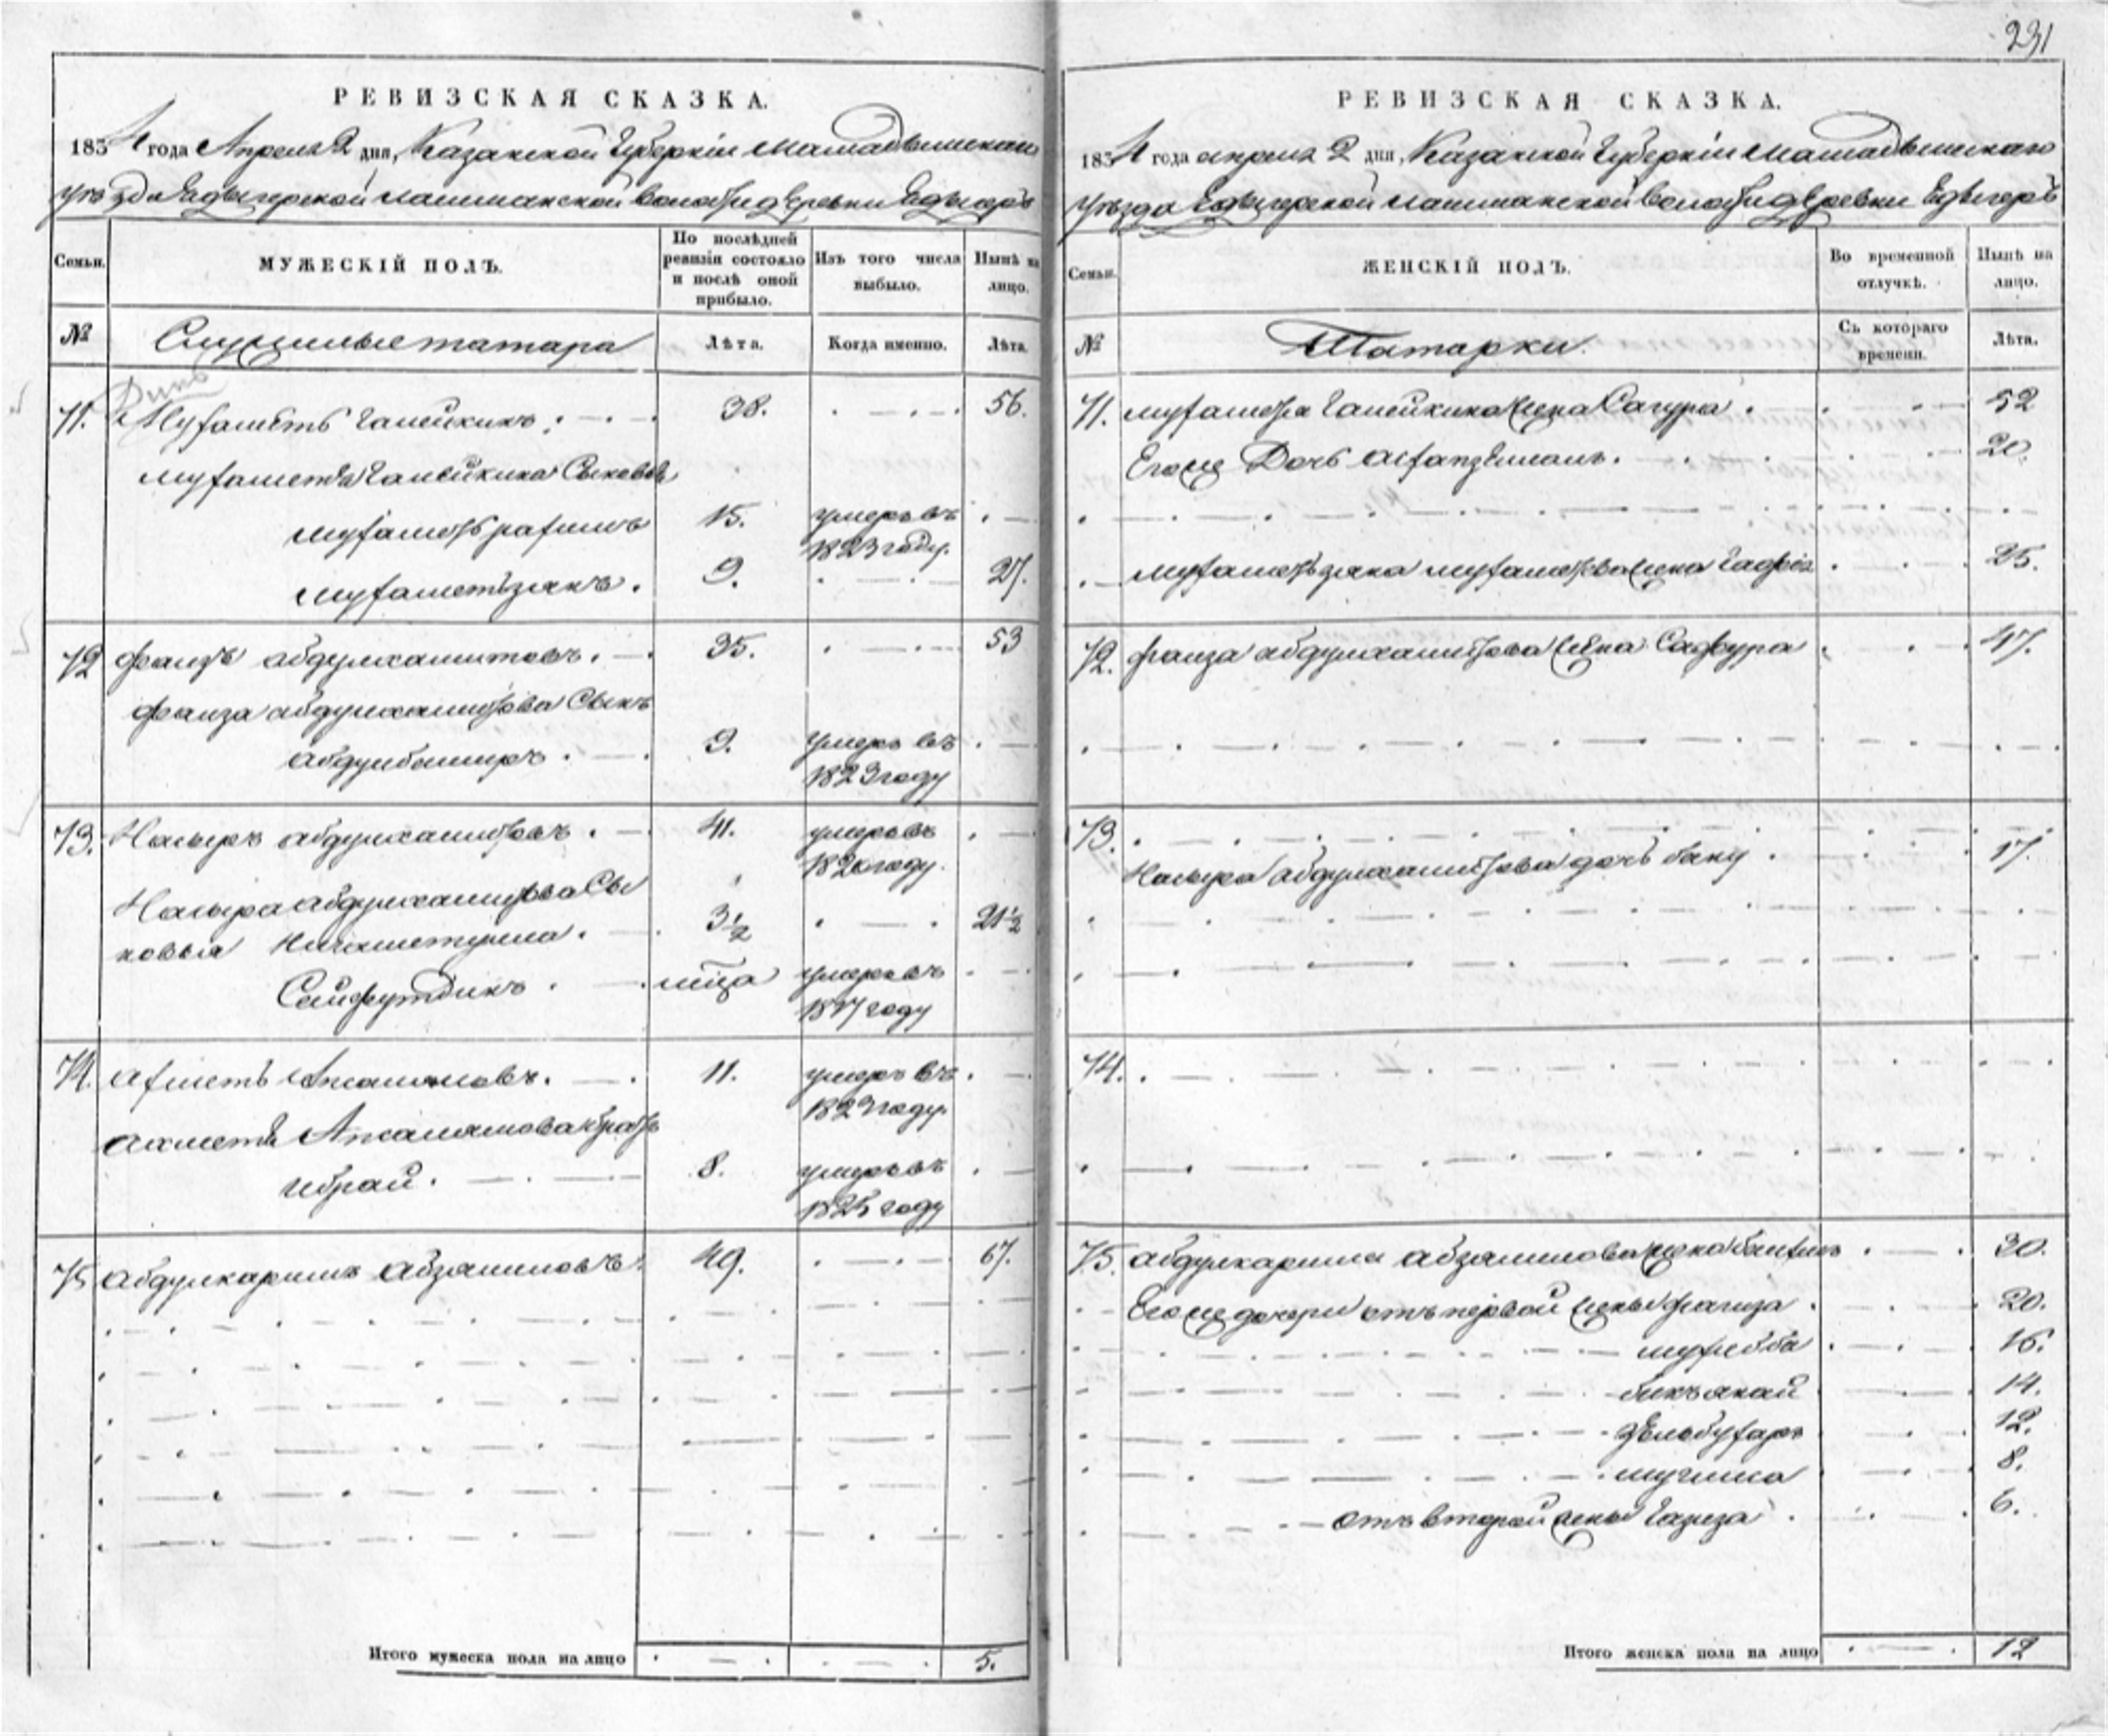 231
РЕВИЗСКАЯ СКАЗКА.
1834 года Апреля 2 дня, Казанской Губерніи Мамадышскаго
уѣзда Едыгерской лашманской волости деревни Едыгеръ
Семьи.
МУЖЕСКІЙ ПОЛЪ.
По послѣдней ревизіи состояло и послѣ оной прибыло.
Изъ того числа выбыло.
Нынѣ на лицо.
№
Служилые татара
Лѣта.
Когда именно.
Лѣта.
71. Мухаметь 38. 56.
Мухаметя Сыновья
мухаметьрахимъ 15. умеръ въ
1823 году.
мухаметьзянъ. 9. 27.
72 Фаизъ абдулхалитовъ. 35. 53
Фаиза абдулхалитова Сынъ
абдулбаширъ. 9. умеръ въ
1823 году
73. Насыръ абдулхалитовъ. 41. умеръ въ
1826 году.
Насыра абдулхалитова Сы
новья 3½ 21½
Сейфутдинъ. умеръ въ
1817 году
74. Ахметь Апсалямовъ. 11. умеръ въ
1823 году.
Ахметя Апсалямова братъ
ибрай. 8. умеръ въ
1825 году
75 Абдулкаримъ Абзялиловъ. 49. 67.
Итого мужеска пола на лицо 5.
РЕВИЗСКАЯ СКАЗКА.
1834 года апреля 2 дня, Казанской Губерніи Мамадышскаго
уѣзда Едыгерской лашманской волости деревни Едыгеръ
Семьи.
ЖЕНСКІЙ ПОЛЪ.
Во временной отлучкѣ.
Нынѣ на лицо.
№
Татарки.
Съ котораго времени.
Лѣта.
71. мухаметя жена Сагура. 52
Егоже Дочь 20.
мухаметьзяна мухаметева жена 25.
72. фаиза абдулхалитова жена Сафура 47.
73.
Насыра абдулхалитова дочь бану. 17.
74.
75. абдулкарима абзялилова жена 30.
Егоже дочери отъ первой жены фагиза 20.
16.
бикъянай 14.
12.
8.
отъ второй жены Газиза 6.
Итого женска пола на лицо 12